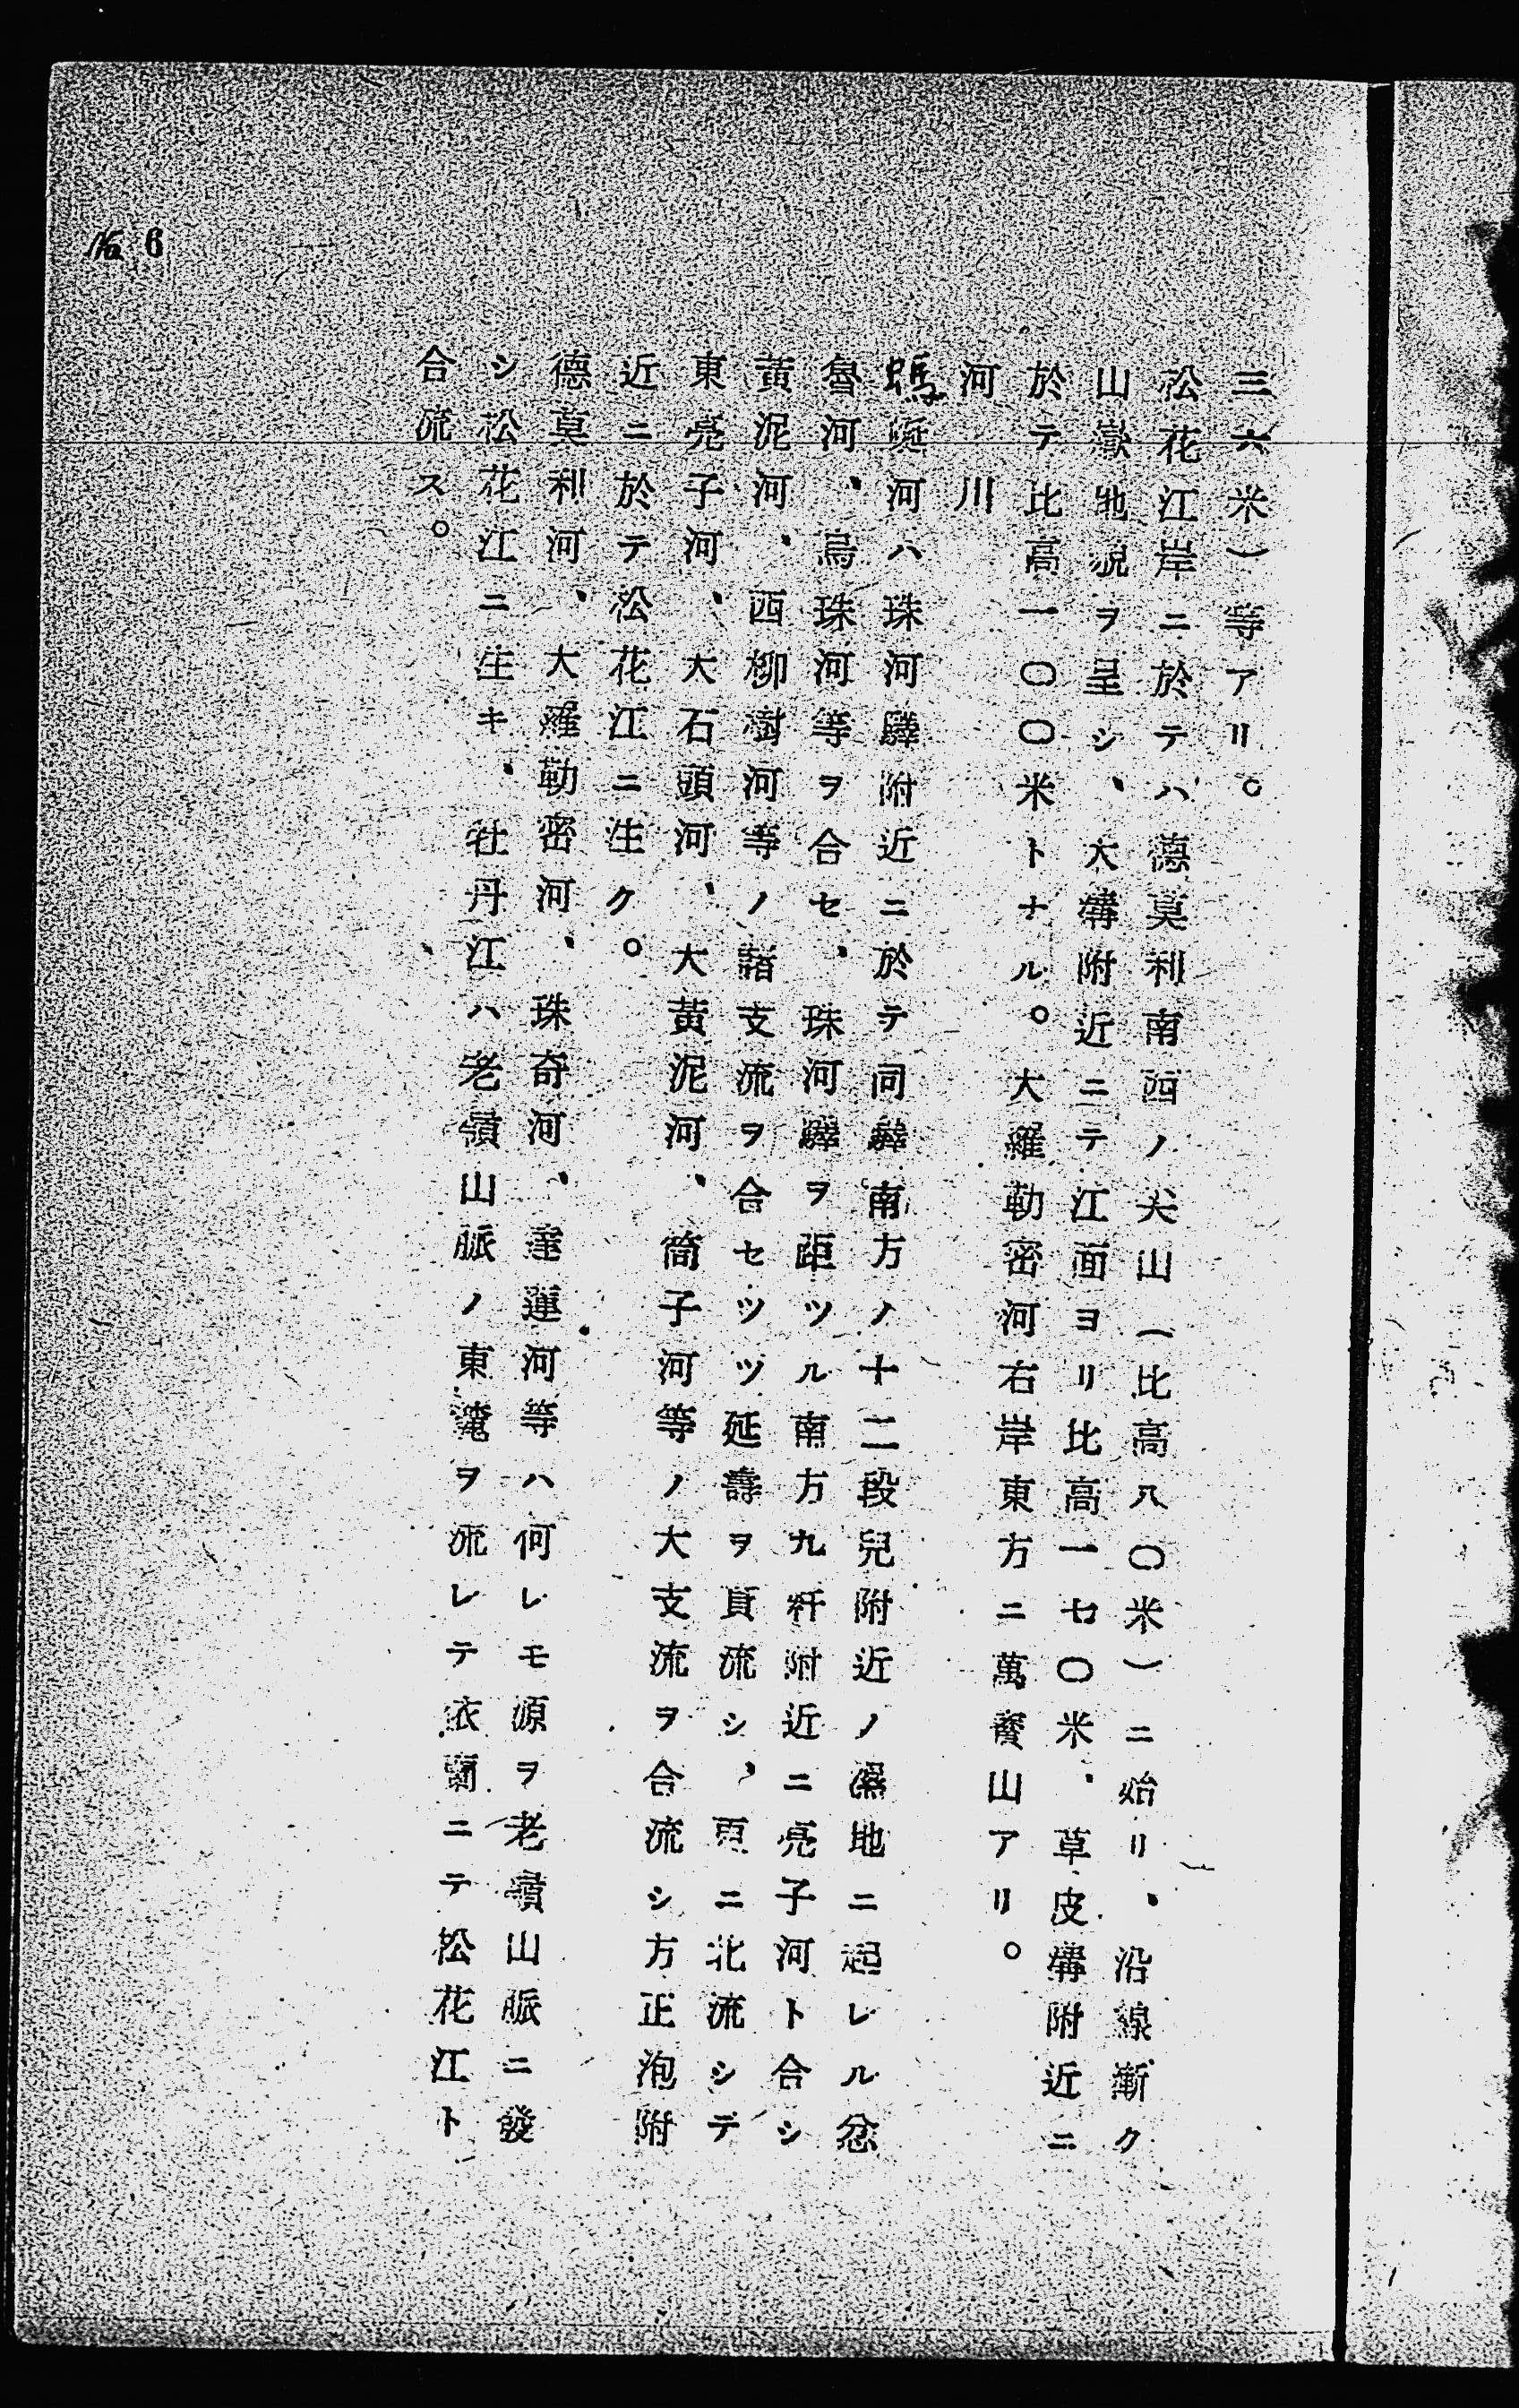 三六米)等アリ。
松花江岸ニ於テハ德莫利南西ノ尖山(比高八〇米)ニ始リ、沿線漸ク
山嶽地貌ヲ呈シ、大溝附近ニテ江面ヨリ比高一七〇米、草皮溝附近ニ
於テ比高一〇〇米トナル。大羅勒密河右岸東方ニ萬寶山アリ。
河川
螞蜒河ハ珠河驛附近ニ於テ同驛南方ノ十二段兒附近ノ濕地ニ起レル忿
魯河、烏珠河等ヲ合セ、珠河驛ヲ距ツル南方九粁附近ニ亮子河ト合シ
黃泥河、西柳樹河等ノ諸支流ヲ合セツツ延壽ヲ貫流シ、更ニ北流シテ
東亮子河、大石頭河、大黃泥河、筒子河等ノ大支流ヲ合流シ方正泡附
近ニ於テ松花江ニ注ク。
德莫利河、大羅勒密河、珠奇河、達連河等ハ何レモ源ヲ老嶺山脈ニ發
シ松花江ニ注キ、牡丹江ハ老嶺山脈ノ東麓ヲ流レテ依蘭ニテ松花江ト
合流ス。
No. 6